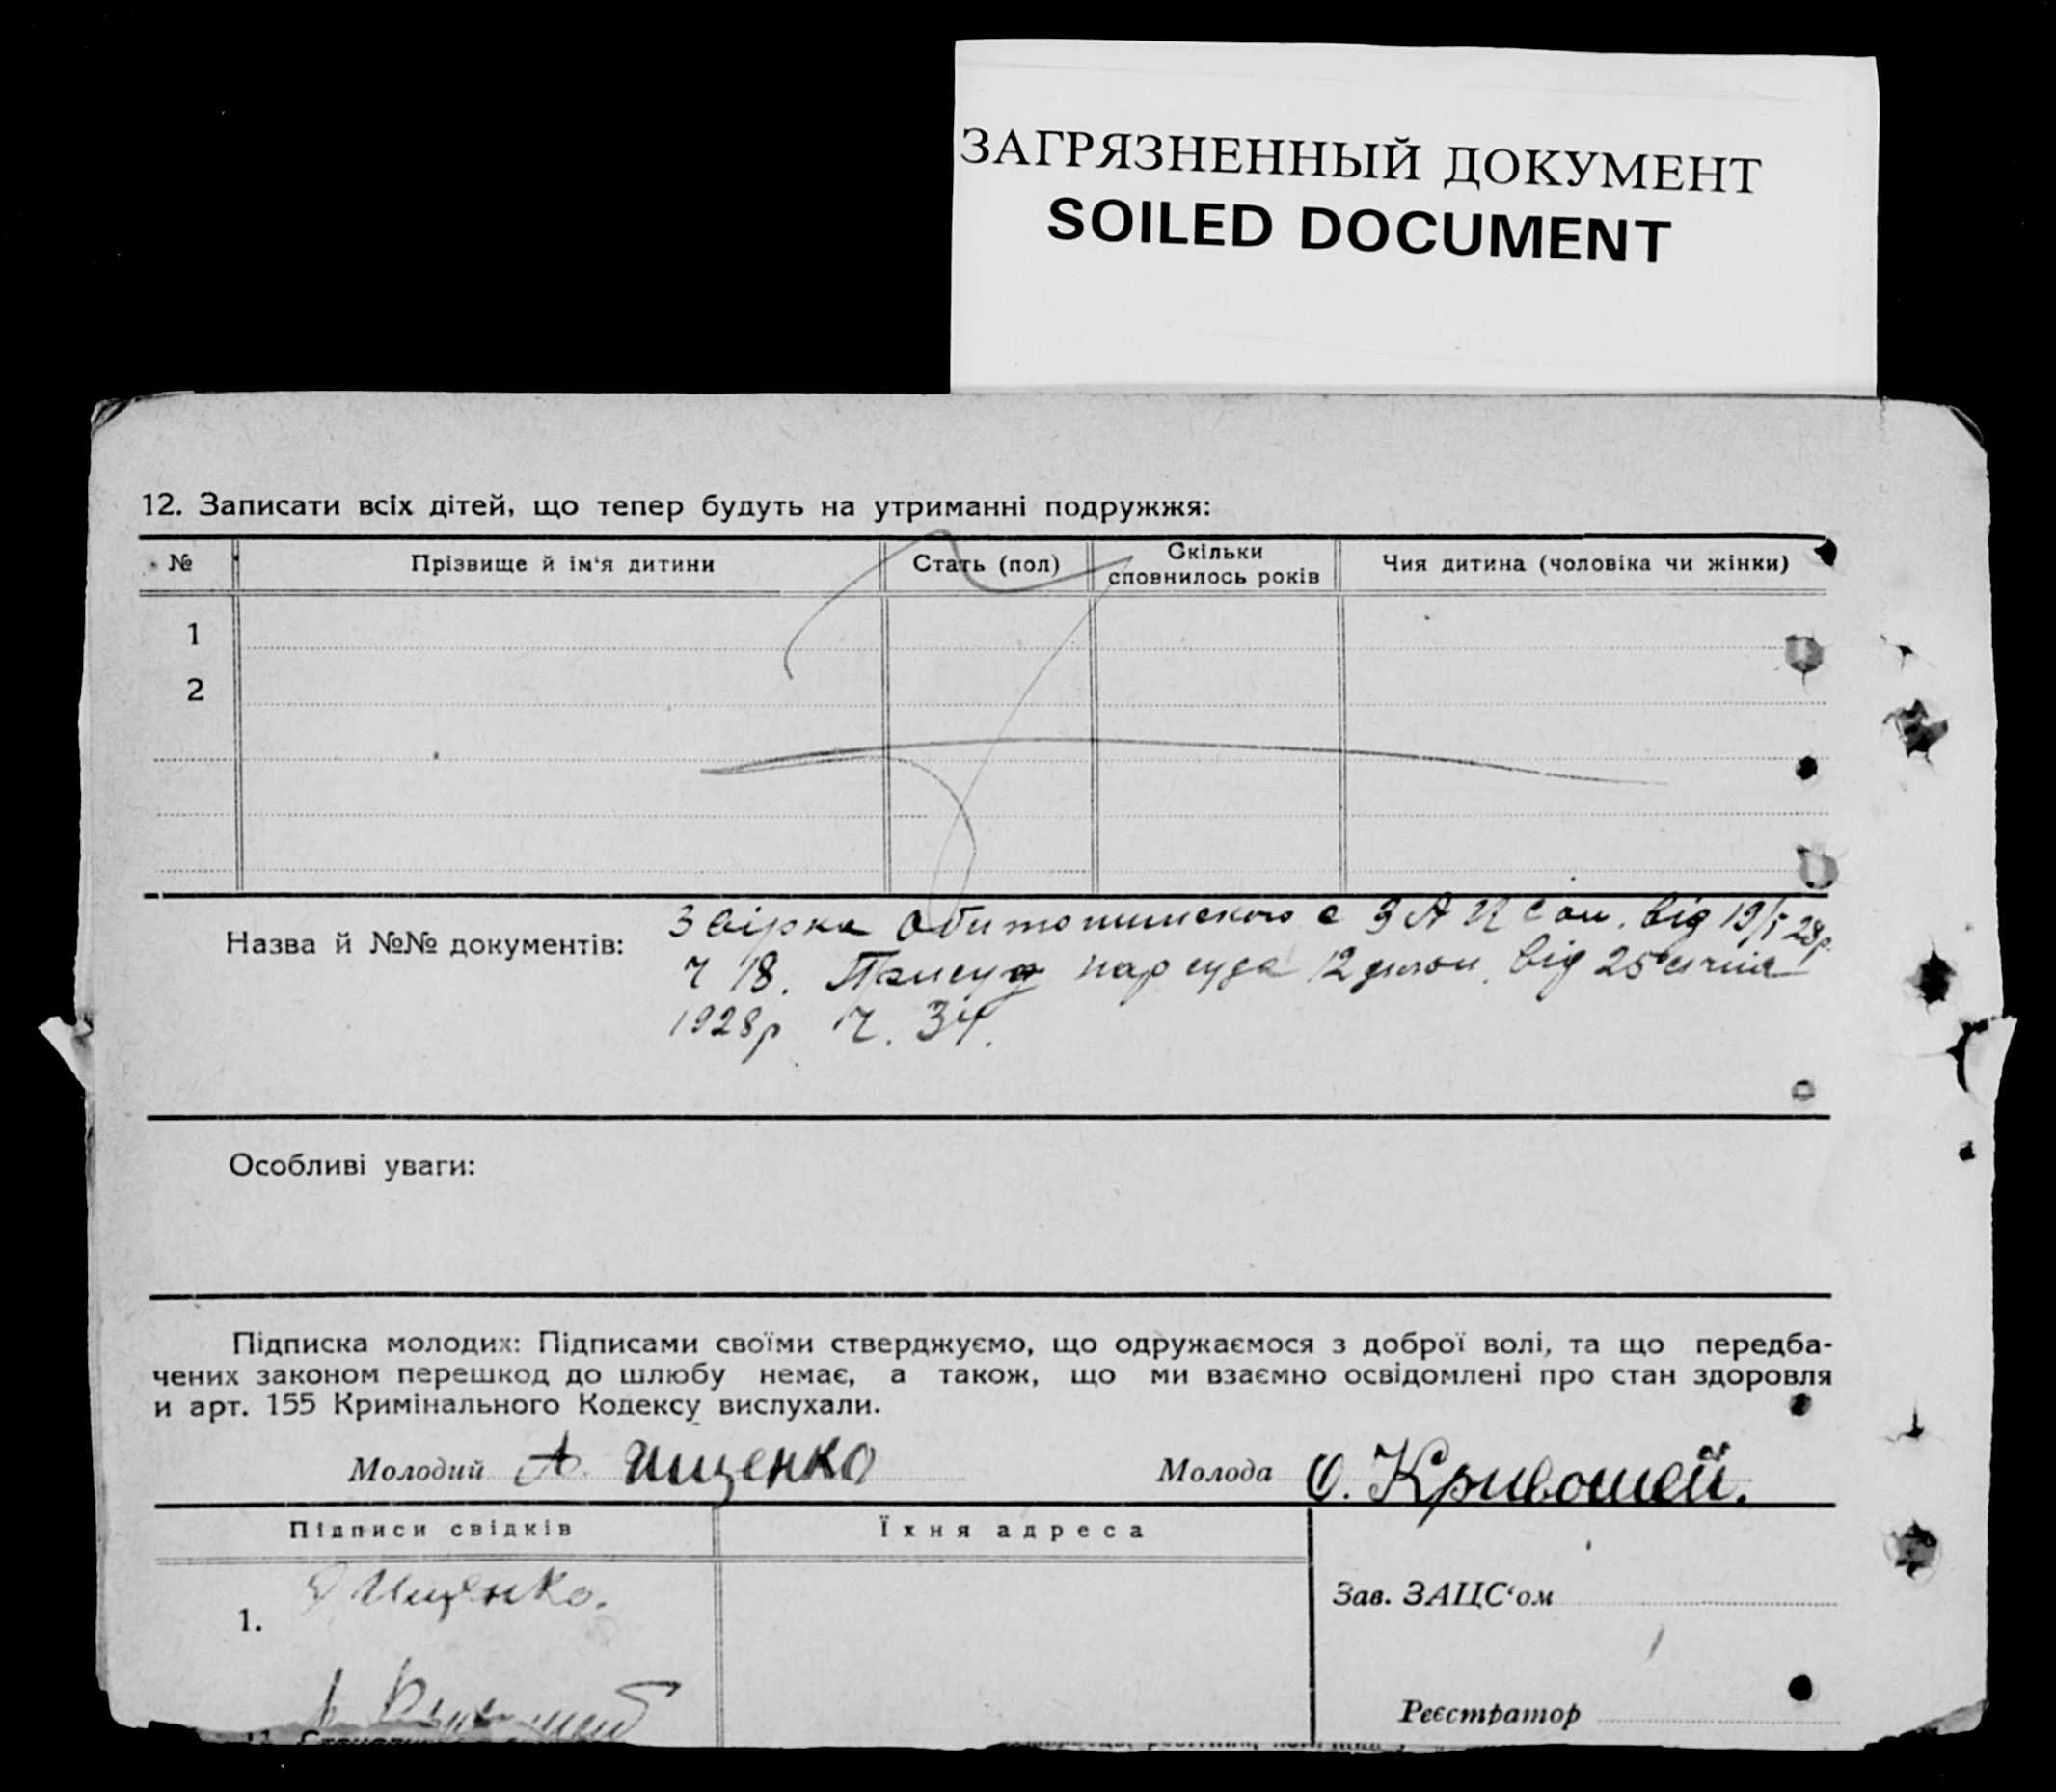 ЗАГРЯЗНЕННЫЙ ДОКУМЕНТ
SOILED DOCUMENT
12. Записати всіх дітей, що тепер будуть на утриманні подружжя:
№ Прізвище й ім‘я дитини Стать (пол) Скільки сповнилось років Чия дитина (чоловіка чи жінки)
1
2
Назва й №№ документів:
від 19/I 28р.
ч 18. Присуд нарсуда 12 від 25 січня
1928р ч. 34.
Особливі уваги:
Підписка молодих: Підписами своїми стверджуємо, що одружаємося з доброї волі, та що передба-
чених законом перешкод до шлюбу немає, а також, що ми взаємно освідомлені про стан здоровля
и арт. 155 Кримінального Кодексу вислухали.
Молодий А. Ищенко Молода О. Кривошей.
Підписи свідків Їхня адреса
Ищенко.
1.
Зав. ЗАЦС‘ом
Реєстратор